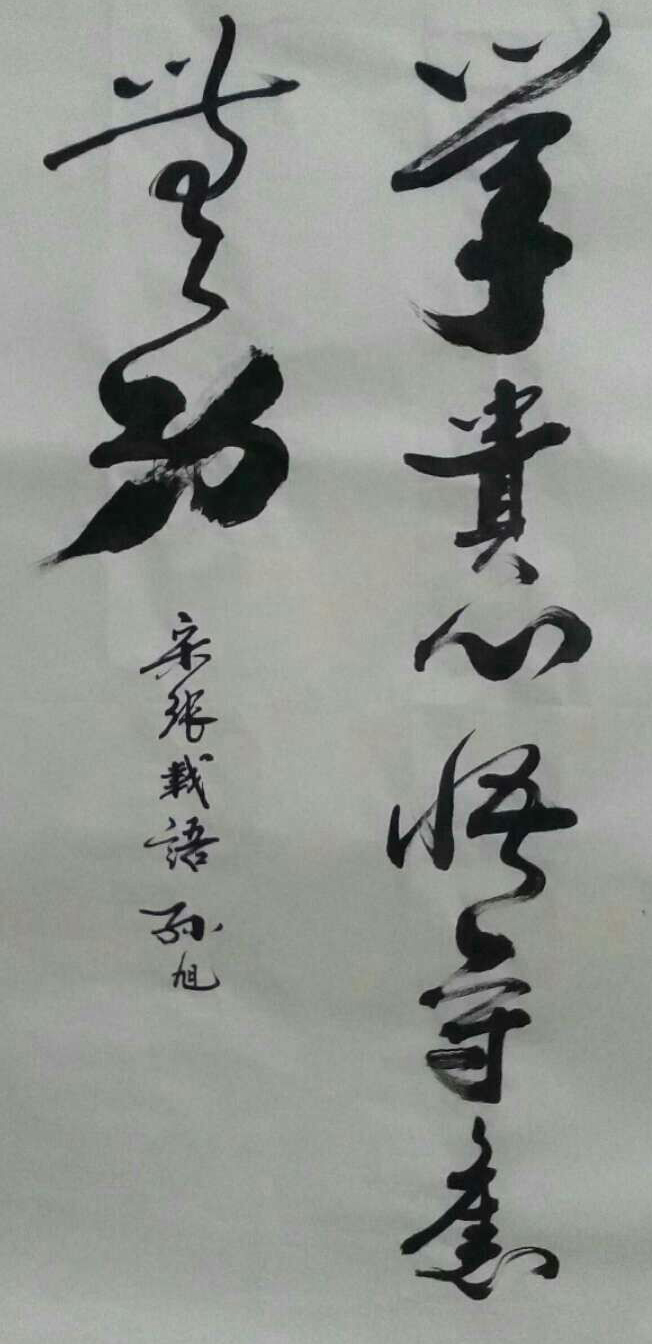 学貴心悟守舊
無功
宋張載語 孙旭